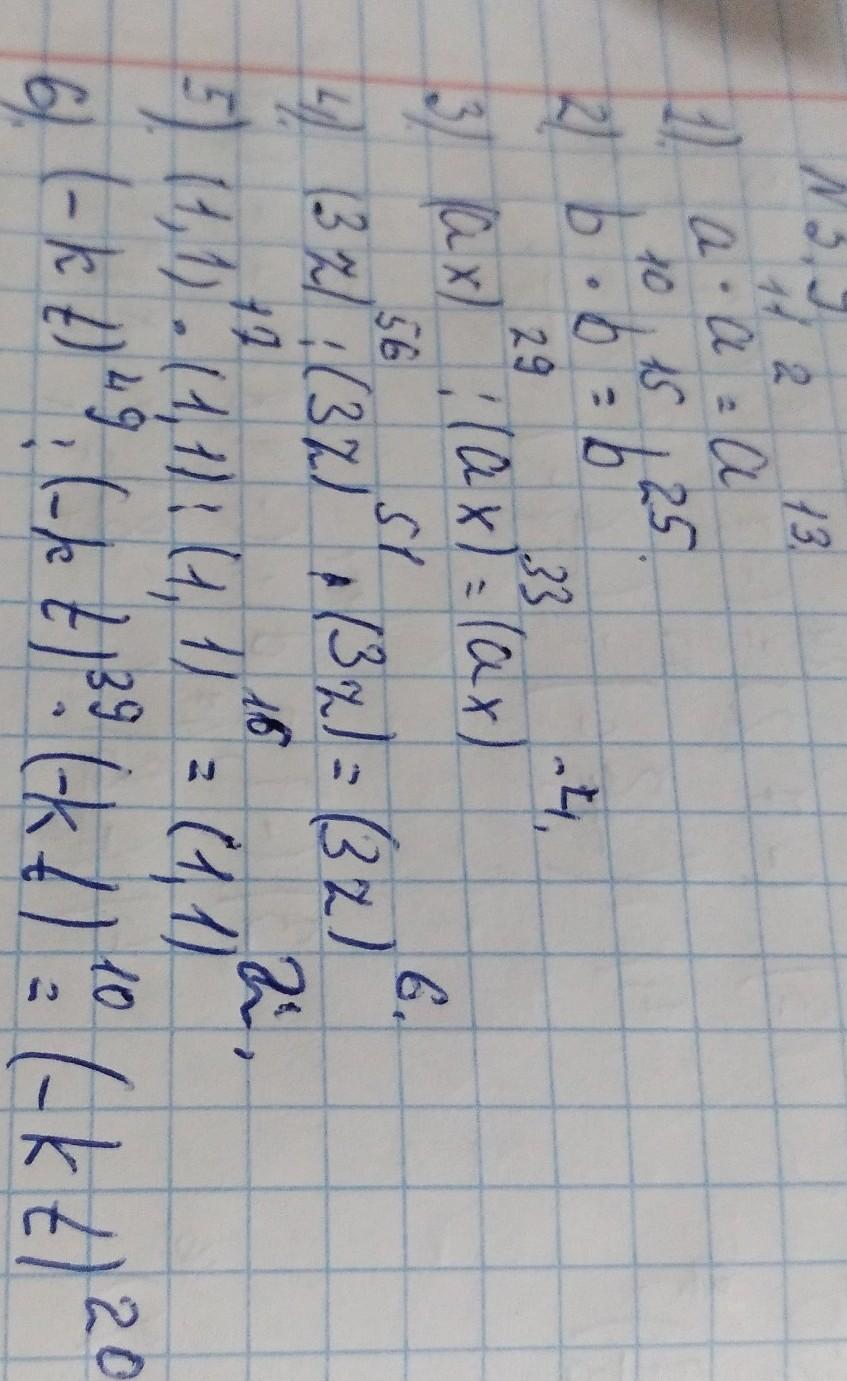 N 3,9
1). a¹¹ · a² = a¹³.
2). b¹⁰ · b¹⁵ = b²⁵.
3) (ax)²⁹ : (ax)³³ = (ax)⁻⁴.
4). (3z)⁵⁶ : (3z)⁵¹ · (3z) = (3z)⁶.
5). (1,1)¹⁷ · (1,1) : (1,1)¹⁶ = (1,1)².
6). (-kt)⁴⁹ : (-kt)³⁹ · (-kt)¹⁰ = (-kt)²⁰